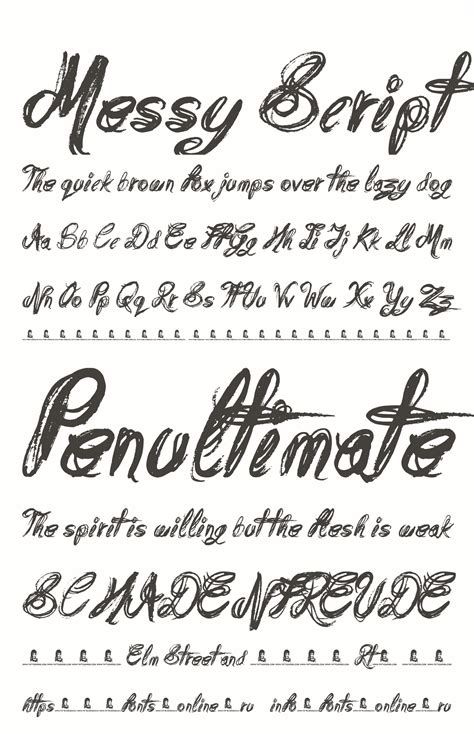 Messy Script
The quick brown fox jumps over the lazy dog
Aa Bb Cc Dd Ee Ff Gg Hh Ii Jj Kk Ll Mm
Nn Oo Pp Qq Rr Ss Tt Uu Vv Ww Xx Yy Zz
Penultimate
The spirit is willing but the flesh is weak
SCHADENFREUDE
Elm Street and Rt
https fonts online ru info fonts online ru